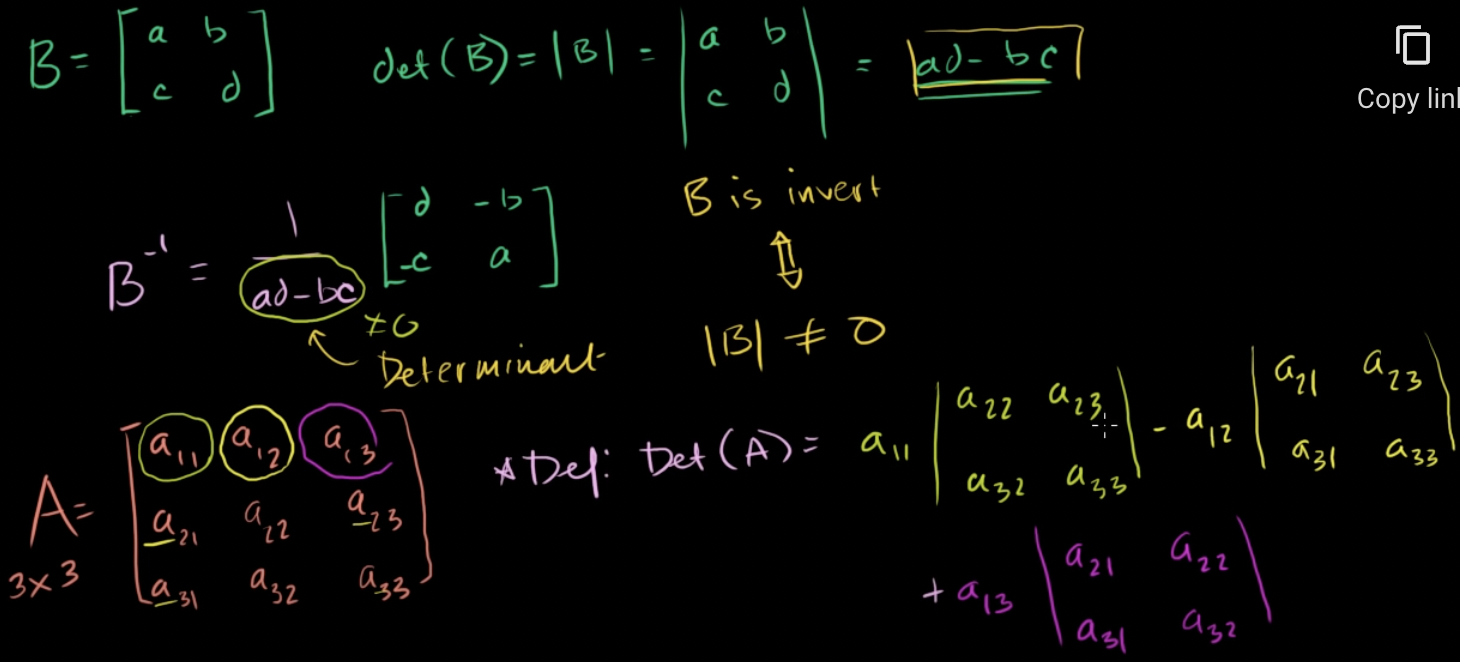 B = [a b; c d] det(B) = |B| = |a b; c d| = ad - bc
Copy lin
B⁻¹ = 1/(ad - bc) [d -b; -c a]
B is invert
⇕
≠0
Determinant
|B| ≠ 0
A = [a₁₁ a₁₂ a₁₃; a₂₁ a₂₂ a₂₃; a₃₁ a₃₂ a₃₃]
3x3
*Def: Det(A) = a₁₁ |a₂₂ a₂₃; a₃₂ a₃₃| - a₁₂ |a₂₁ a₂₃; a₃₁ a₃₃|
+ a₁₃ |a₂₁ a₂₂; a₃₁ a₃₂|